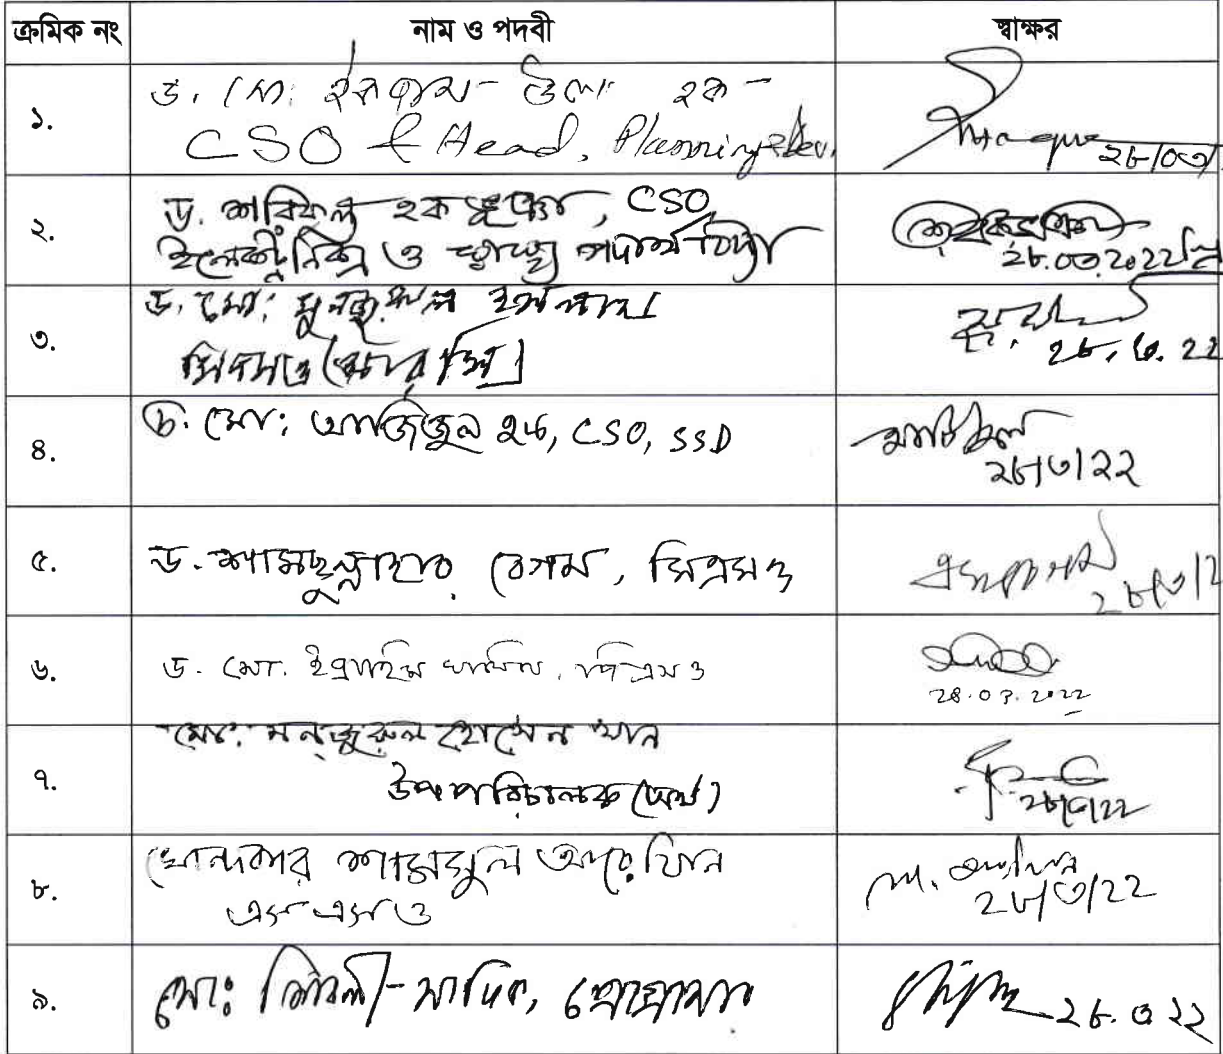 ক্রমিক নং নাম ও পদবী স্বাক্ষর
১. ড. মো: উল হক
CSO & Head, Planning & Dev. ২৮/০৩/
২. ড. শরিফুল হক ভূঞা, CSO,
ইলেকট্রনিক্স ও স্বাস্থ্য পদার্থ বিদ্যা ২৮.০৩.২০২২
৩. ড. মো: ইসলাম
২৮. ৩. ২২
৪. ড. মো: আজিজুল হক, CSO, SSD
২৮/৩/২২
৫. ড. শামছুন্নাহার বেগম, সিএসও
২৮/৩/২
৬. ড. মো. ইব্রাহিম খলিল, পিএসও
28.03.2022
৭. মো: মনজুরুল হোসেন খান
উপপরিচালক (অর্থ)
২৮/৩/২২
৮. খোন্দকার শামসুল আরেফিন
এস এস ও ২৮/৩/২২
৯. মো: শিবলী সাদিক, প্রোগ্রামার ২৮. ৩ ২২